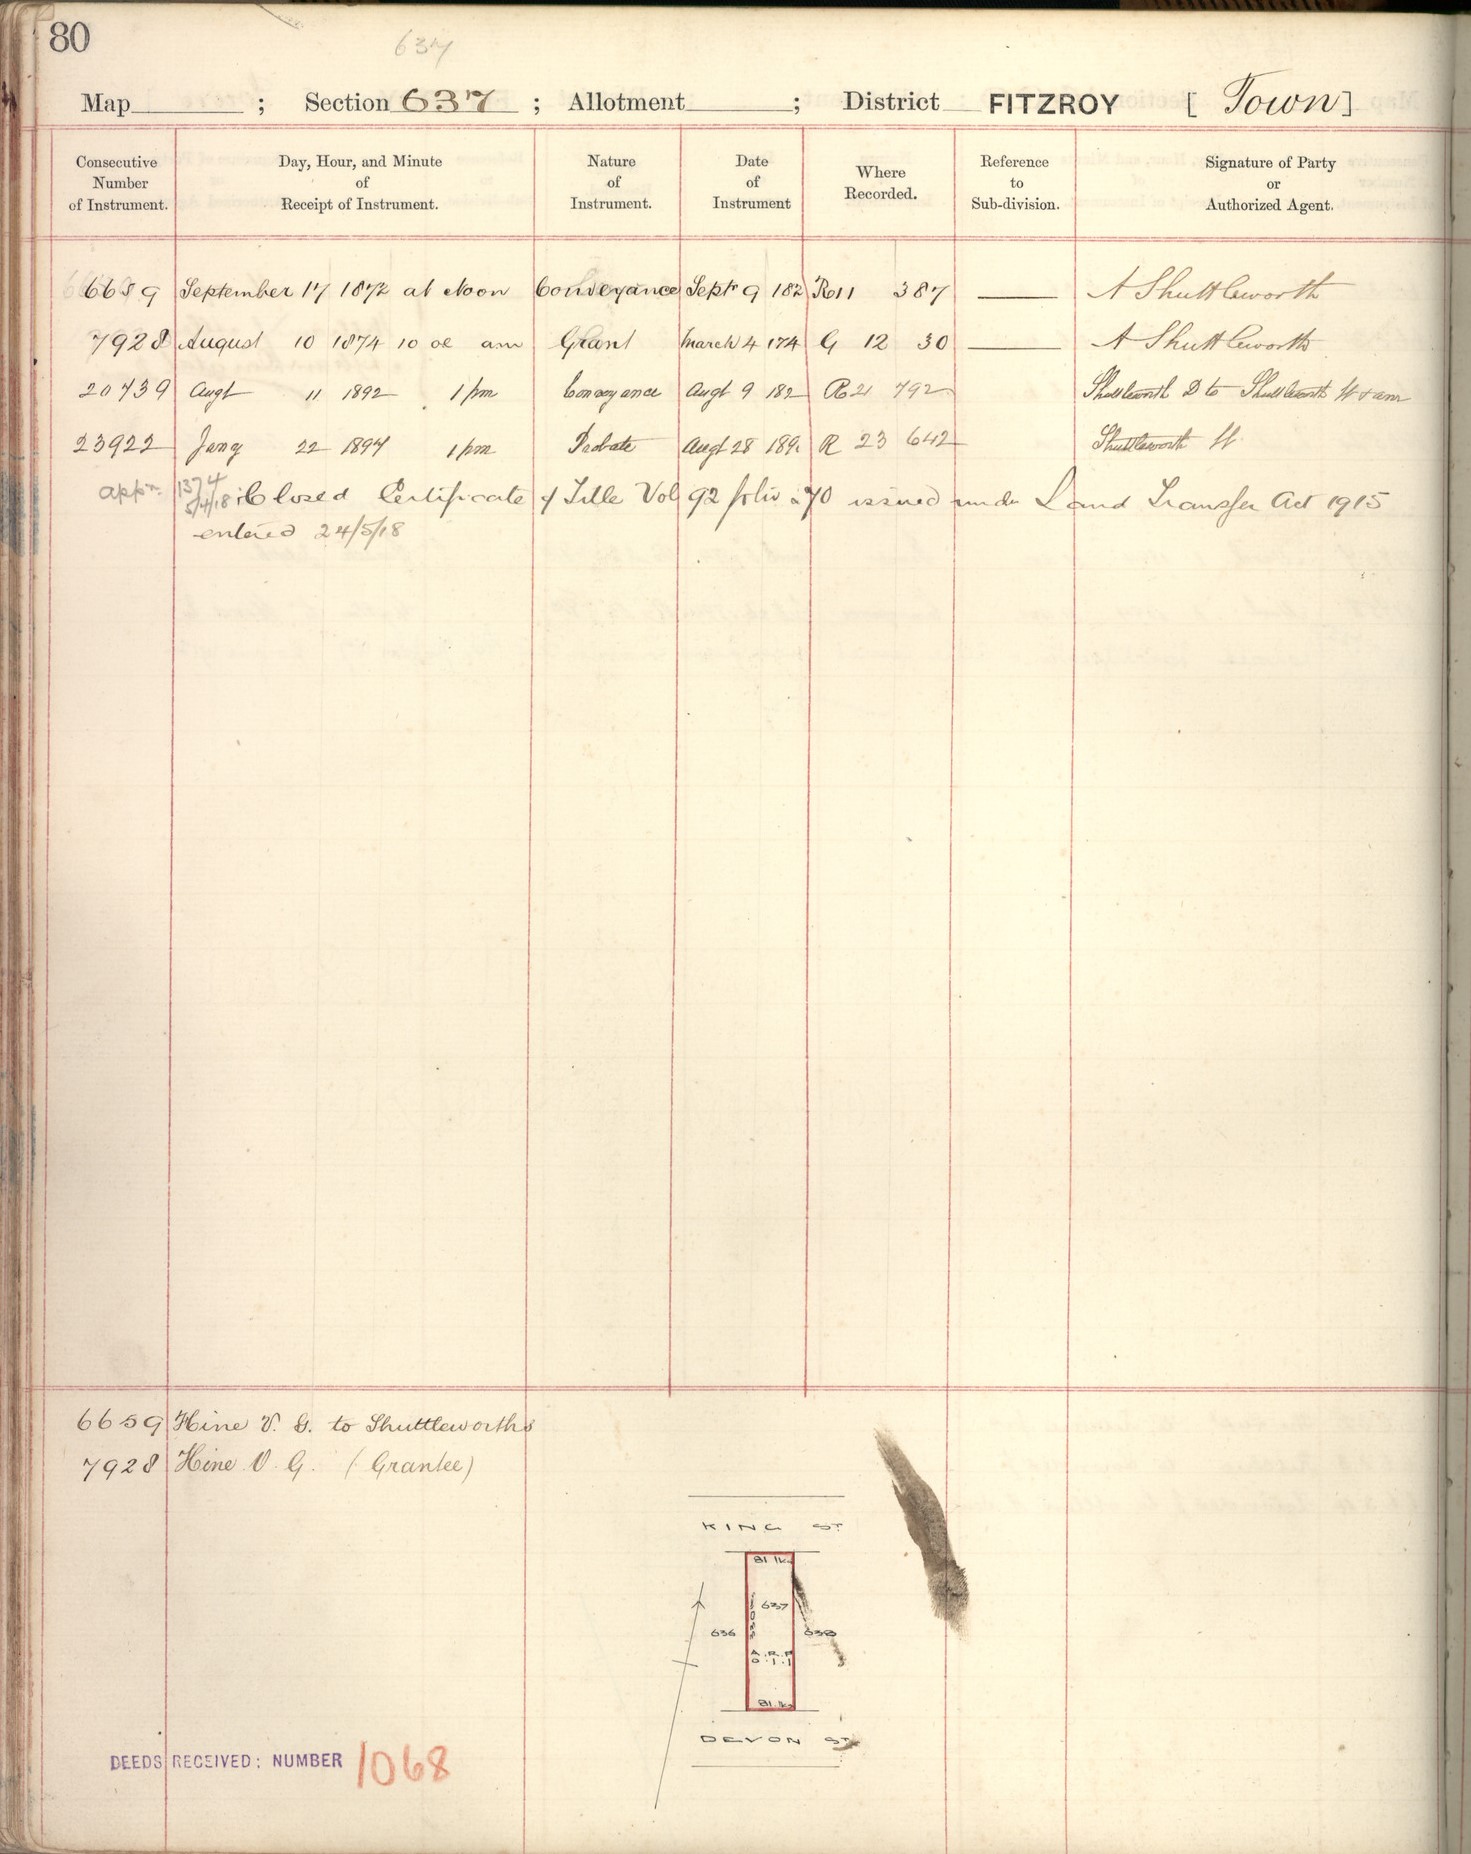 80
637
Map ; Section 637 ; Allotment ; District FITZROY [ Town ]
Consecutive Number of Instrument. Day, Hour, and Minute of Receipt of Instrument. Nature of Instrument. Date of Instrument Where Recorded. Reference to Sub-division. Signature of Party or Authorized Agent.
6659 September 17 1872 at Noon Conveyance Septr 9 182 R11 387 A Shuttleworth
7928 August 10 1874 10 oc am Grant March 4 174 G 12 30 A Shuttleworth
20739 Augt 11 1892 1 pm Conveyance Augt 9 182 R21 792 Shuttleworth D to Shuttleworth H & anr
23922 Jany 22 1897 1 pm Probate Augt 28 189 R 23 642 Shuttleworth H
appn. 1374 5/4/18 Closed Certificate of Title Vol 92 folio 270 issued under Land Transfer Act 1915
entered 24/5/18
6659 Hine V. G. to Shuttleworths
7928 Hine V. G. (Grantee)
KING ST
81 lks
637
1033
636
638
A. R. P
0. 1. 1
81. lks
DEVON ST
DEEDS RECEIVED: NUMBER 1068